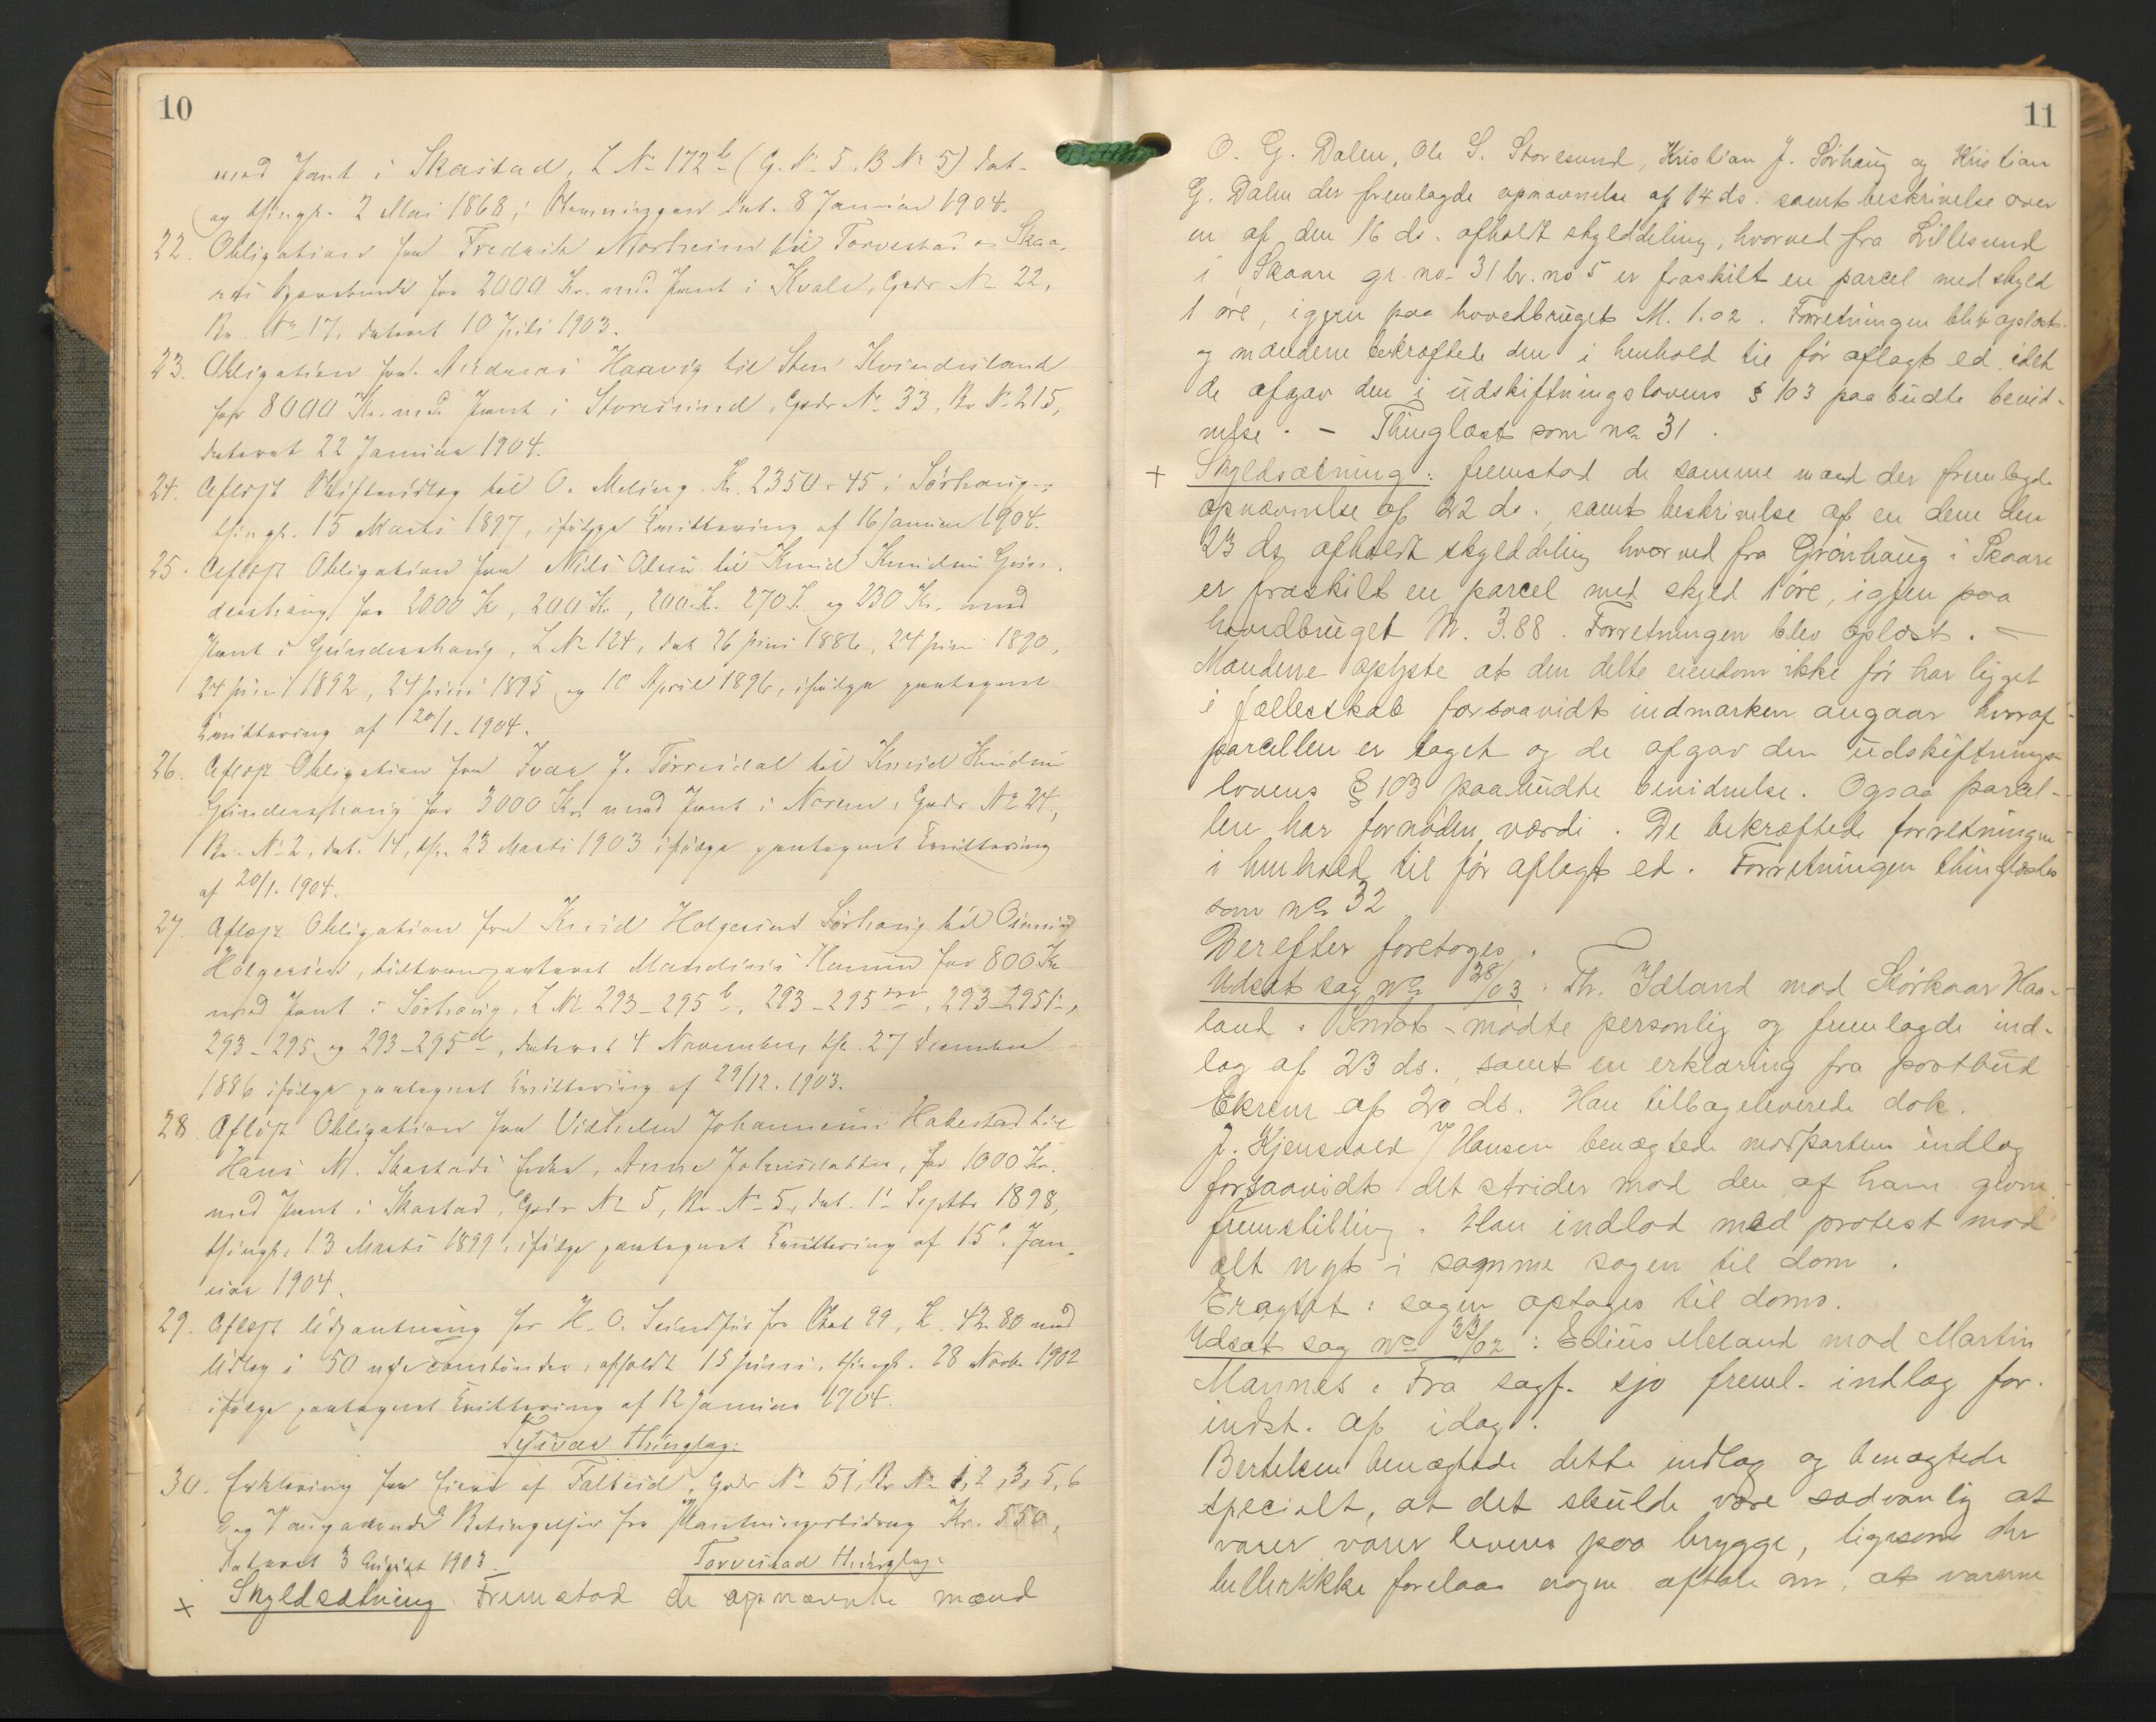 10
med Pant i Skastad, L No 172 b (G. No 5. B No 5) dat.
og thingl. 2 Mai 1868, dat. 8 Januar 1904.
22. Obligation fra Fredrik Norheim til Torvestad og Skaa-
res Sparebank for 2000 Kr. med Pant i Kvale, Gads No 22,
Br. No 17. dateret 10 Juli 1903.
23. Obligation fra Andreas Haavig til Sten Kvindesland
for 8000 Kr. med Pant i Storesund, Gads No 33, Br No 215,
dateret 22 Januar 1904.
24. Aflyst Skifteudlæg til O. Meling Kr. 2350-45 i Sørhaug,
thingl. 15 Marts 1897, ifølge Kvittering af 16 Januar 1904.
25. Aflyst Obligation fra Nils til Knud Knudsen Gun-
dershaug for 2000 Kr, 200 Kr, 200 K. 270 K. og 230 Kr. med
Pant i Gundershaug, L No 124, dat 26 Juni 1886, 24 Juni 1890,
24 Juni 1892, 24 Juni 1895 og 10 April 1896, ifølge paategnet
Kvittering af 20/1. 1904.
26. Aflyst Obligation fra Ivar J. Torresdal til Knud Knudsen
Gundershaug for 3000 Kr. med Pant i Norem, Gads No 24,
Br. No 2, dat. 14, th. 23 Marts 1903 ifølge paategnet Kvittering
af 20/1. 1904.
27. Aflyst Obligation fra Knud Holgersen Sørhaug til
Holgersen, transporteret for 800 Kr
med Pant i Sørhaug, L No 293-295 b, 293-295, 293-295,
293-295 og 293-295 d, dateret 4 November, th. 27 December
1886 ifølge paategnet Kvittering af 29/12. 1903.
28. Aflyst Obligation fra Vilhelm Johannesen til
Hans M. Skastads Enke, Anna, for 1000 Kr.
med Pant i Skastad, Gads No 5, Br. No 5, dat. 1 Septbr 1898,
thingl. 13 Marts 1899, ifølge paategnet Kvittering af 15. Jan-
uar 1904.
29. Aflyst Udpantning for H. O. Sundfør for Skat 99, K. 42.80 med
Udlæg i 50, afholdt 15 Juni, thingl. 28 Novb. 1902
ifølge paategnet Kvittering af 12 Januar 1904.
Tysvær Thinglag:
30. Erklæring fra Eierne af Falkeid, Gads No 51, Br No 1, 2, 3, 5, 6
og angaaende Betingelser for Kr. 550,
dateret 3 August 1903.
Torvestad Thinglag:
x Skyldsætning Fremstod de opnævnte mænd
11
O. G. Dalen, Ole S. Storesund, Kristian J. Sørhaug og Kristian
G. Dalen der fremlagde opnævnelse af 14 ds. samt beskrivelse over
en af den 16 ds. afholdt skylddeling, hvorved fra Lillesund
i Skaare gr. no. 31 br. no 5 er fraskilt en parcel med skyld
1 øre, igjen paa hovedbruget M. 1.02. Forretningen blev oplæst
og mændene bekræftede den i henhold til før aflagt ed idet
de afgav den i udskiftningslovens § 103 paabudte bevid-
nelse. - Thinglæst som no 31.
+ Skyldsætning: fremstod de samme mænd der fremlagde
opnævnelse af 22 ds., samt beskrivelse af en dem den
23 ds afholdt skylddeling hvorved fra Grønhaug i Skaare
er fraskilt en parcel med skyld 1 øre, igjen paa
hovedbruget M. 3.88. Forretningen blev oplæst. -
Mændene oplyste at den delte eiendom ikke før har ligget
i fællesskab forsaavidt indmarken angaar hvoraf
parcellen er taget og de afgav den udskiftnings-
lovens § 103 paabudte bevidnelse. Ogsaa parcel-
len har fornøden værdi. De bekræftede forretningen
i henhold til før aflagt ed. Forretningen thinglæstes
som no 32
Derefter foretoges.
Udsat sag no 28/03: Th. Idland mod Størkaar Haa-
land. mødte personlig og fremlagde ind-
læg af 23 ds., samt en erklæring fra postbud
Ekrene af 20 ds. Han tilbageleverede dok.
J. Kjensvold f/ Hansen benægtede modpartens indlæg
forsaavidt det strider mod den af ham givne
fremstilling. Han indlod med protest mod
alt nyt i samme sagen til dom.
Eragtet: sagen optages til doms.
Udsat sag no 33/02: Edius Meland mod Martin
Mannes. Fra sagf. Sjo freml. indlæg for.
indst. af idag.
Bertelsen benægtede dette indlæg og benægtede
specielt, at det skulde være sædvanlig at
varer leveres paa brygge, ligesom der
hellerikke forelaa nogen aftale om, at varerne